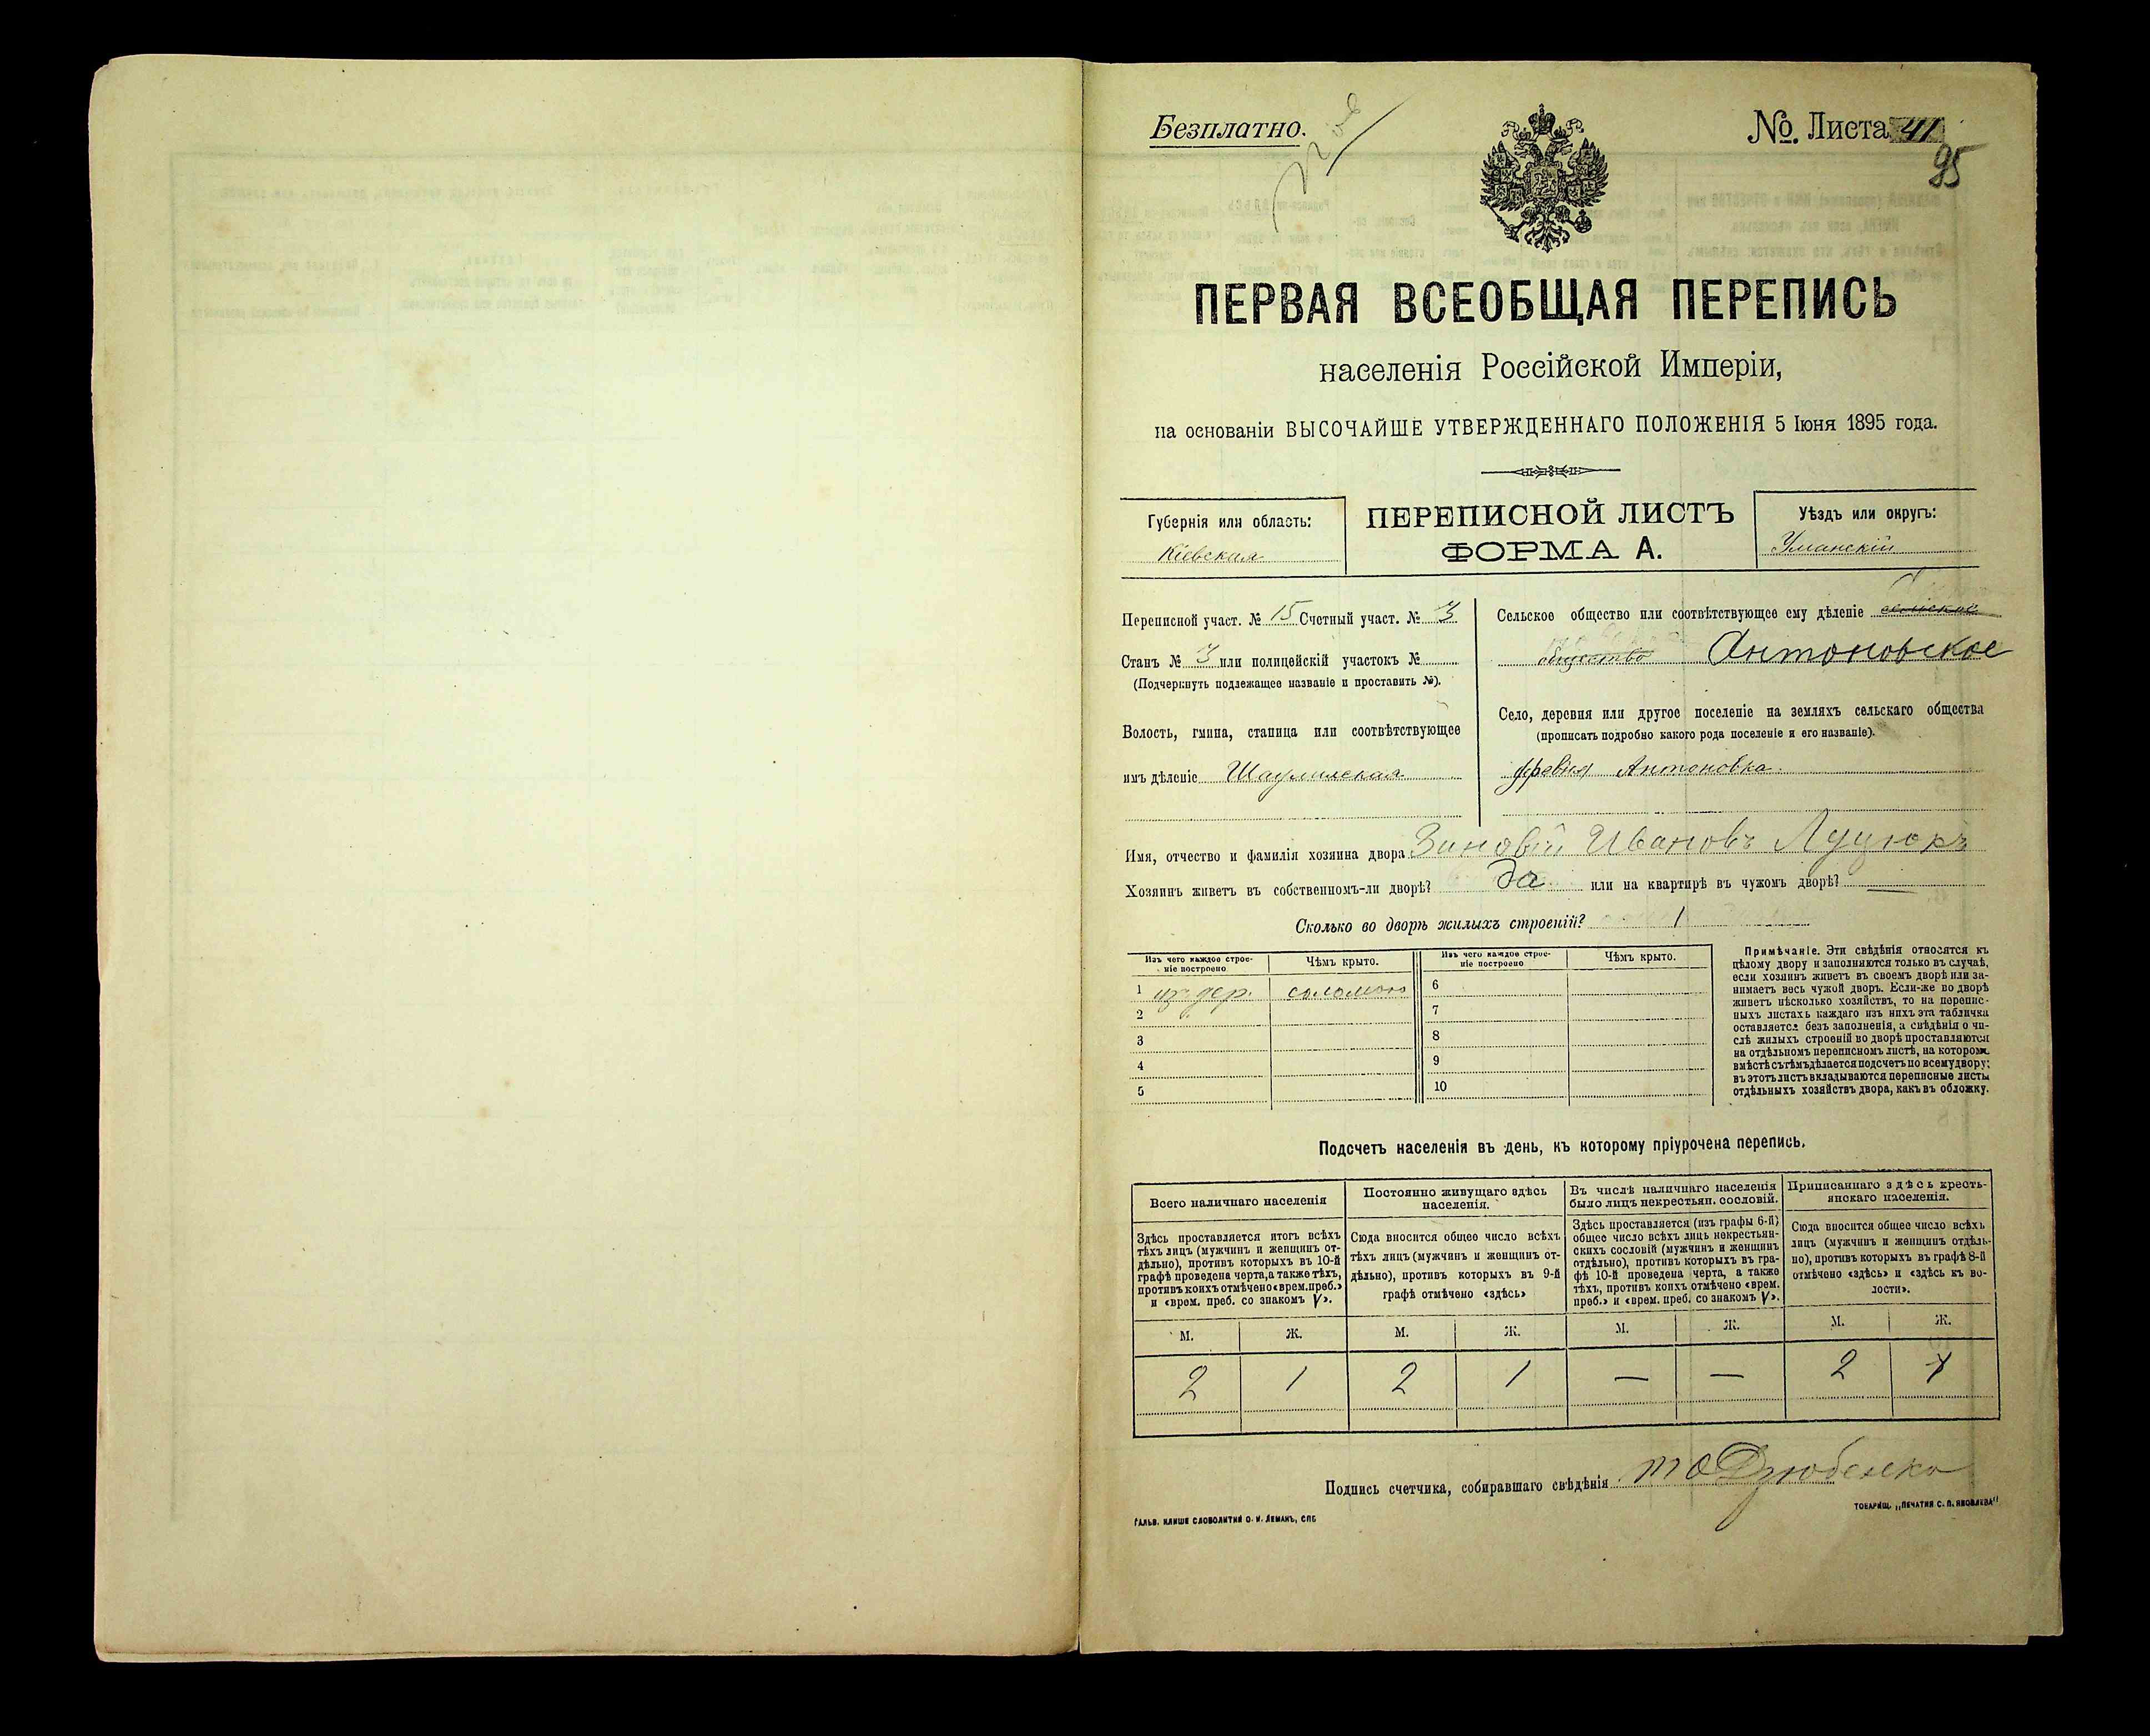 Безплатно.
№. Листа 41
95
ПЕРВАЯ ВСЕОБЩАЯ ПЕРЕПИСЬ
населенія Россійской Имперіи,
на основаніи ВЫСОЧАЙШЕ УТВЕРЖДЕННАГО ПОЛОЖЕНІЯ 5 Іюня 1895 года.
Губернія или область:
Кіевская
ПЕРЕПИСНОЙ ЛИСТЪ
ФОРМА А.
Уѣздъ или округъ:
Уманскій
Переписной участ. № 15 Счетный участ. № 3
Станъ № 3 или полицейскій участокъ №
(Подчеркнуть подлежащее названіе и проставить №).
Волость, гмина, станица или соотвѣтствующее
имъ дѣленіе
Сельское общество или соотвѣтствующее ему дѣленіе сельское
общество Антоновское
Село, деревня или другое поселеніе на земляхъ сельскаго общества
(прописать подробно какого рода поселеніе и его названіе).
Антоновка
Имя, отчество и фамилія хозяина двора Зиновій Ивановъ Луцюкъ
Хозяинъ живетъ въ собственномъ-ли дворѣ? да или на квартирѣ въ чужомъ дворѣ? —
Сколько во дворѣ жилыхъ строеній? 1
Изъ чего каждое строе-
ніе построено
Чѣмъ крыто.
Изъ чего каждое строе-
ніе построено
Чѣмъ крыто.
1 из дер. соломою
2
3
4
5
6
7
8
9
10
Примѣчаніе. Эти свѣдѣнія относятся къ
цѣлому двору и заполняются только въ случаѣ,
если хозяинъ живетъ въ своемъ дворѣ или за-
нимаетъ весь чужой дворъ. Если-же во дворѣ
живетъ нѣсколько хозяйствъ, то на перепис-
ныхъ листахъ каждаго изъ нихъ эта табличка
оставляется безъ заполненія, а свѣдѣнія о чи-
слѣ жилыхъ строеній во дворѣ проставляются
на отдѣльномъ переписномъ листѣ, на которомъ
вмѣстѣ съ тѣмъ дѣлается подсчетъ по всему двору;
въ этотъ листъ вкладываются переписные листы
отдѣльныхъ хозяйствъ двора, какъ въ обложку.
Подсчетъ населенія въ день, къ которому пріурочена перепись.
Всего наличнаго населенія
Здѣсь проставляется итогъ всѣхъ
тѣхъ лицъ (мужчинъ и женщинъ от-
дѣльно), противъ которыхъ въ 10-й
графѣ проведена черта, а также тѣхъ,
противъ коихъ отмѣчено «врем. преб.»
и «врем. преб. со знакомъ V».
Постоянно живущаго здѣсь
населенія.
Сюда вносится общее число всѣхъ
тѣхъ лицъ (мужчинъ и женщинъ от-
дѣльно), противъ которыхъ въ 9-й
графѣ отмѣчено «здѣсь»
Въ числѣ наличнаго населенія
было лицъ некрестьян. сословій.
Здѣсь проставляется (изъ графы 6-й)
общее число всѣхъ лицъ некрестьян-
скихъ сословій (мужчинъ и женщинъ
отдѣльно), противъ которыхъ въ гра-
фѣ 10-й проведена черта, а также
тѣхъ, противъ коихъ отмѣчено «врем.
преб.» и «врем. преб. со знакомъ V».
Приписаннаго здѣсь кресть-
янскаго населенія.
Сюда вносится общее число всѣхъ
лицъ (мужчинъ и женщинъ отдѣль-
но), противъ которыхъ въ графѣ 8-й
отмѣчено «здѣсь» и «здѣсь къ во-
лости».
М. Ж. М. Ж. М. Ж. М. Ж.
2 1 2 1 — — 2 1
Подпись счетчика, собиравшаго свѣдѣнія Дзюбенко
ГАЛЬВ. КЛИШЕ СЛОВОЛИТНИ О. И. ЛЕМАНЪ, СПБ
ТОВАРИЩ. „ПЕЧАТНЯ С. П. ЯКОВЛЕВА"